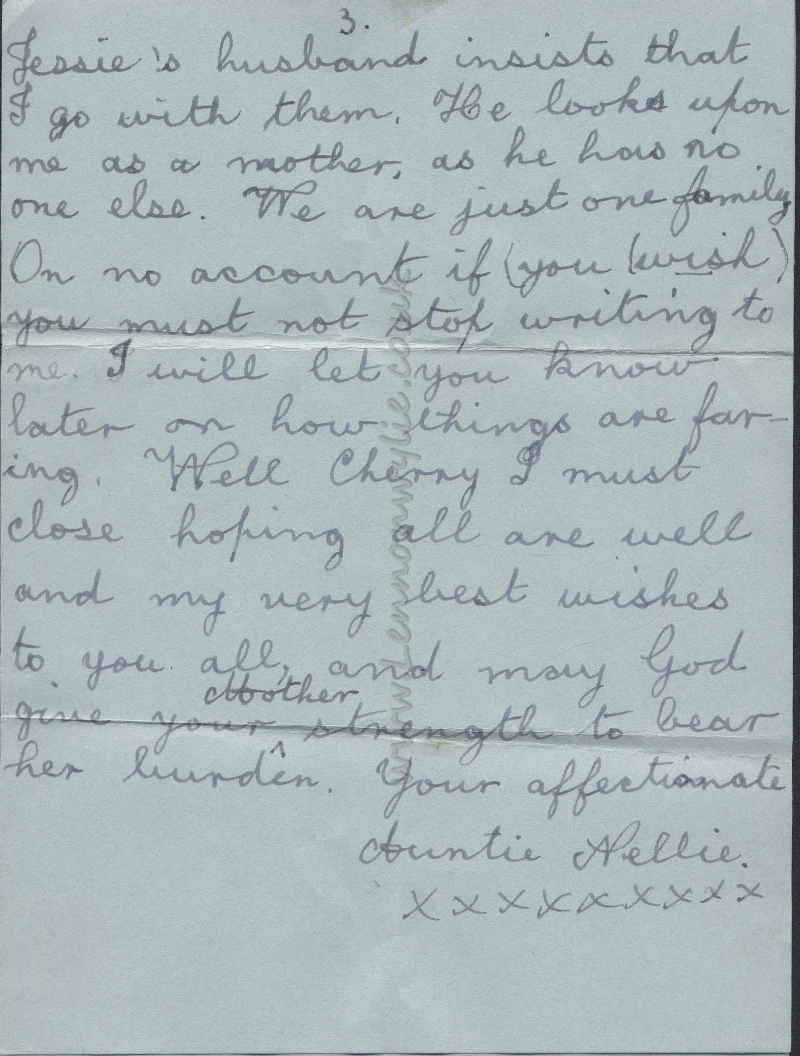 3.
Jessie's husband insists that
I go with them. He looks upon
me as a mother, as he has no
one else. We are just one family
On no account if (you (wish)
you must not stop writing to
me. I will let you know
later on how things are far-
ing. Well Cherry I must
close hoping all are well
and my very best wishes
to you all, and may God
Mother
give your ^ strength to bear
her burden. Your affectionate
Auntie Nellie.
xxxxxxxxx
www.Lennonwylie.co.uk